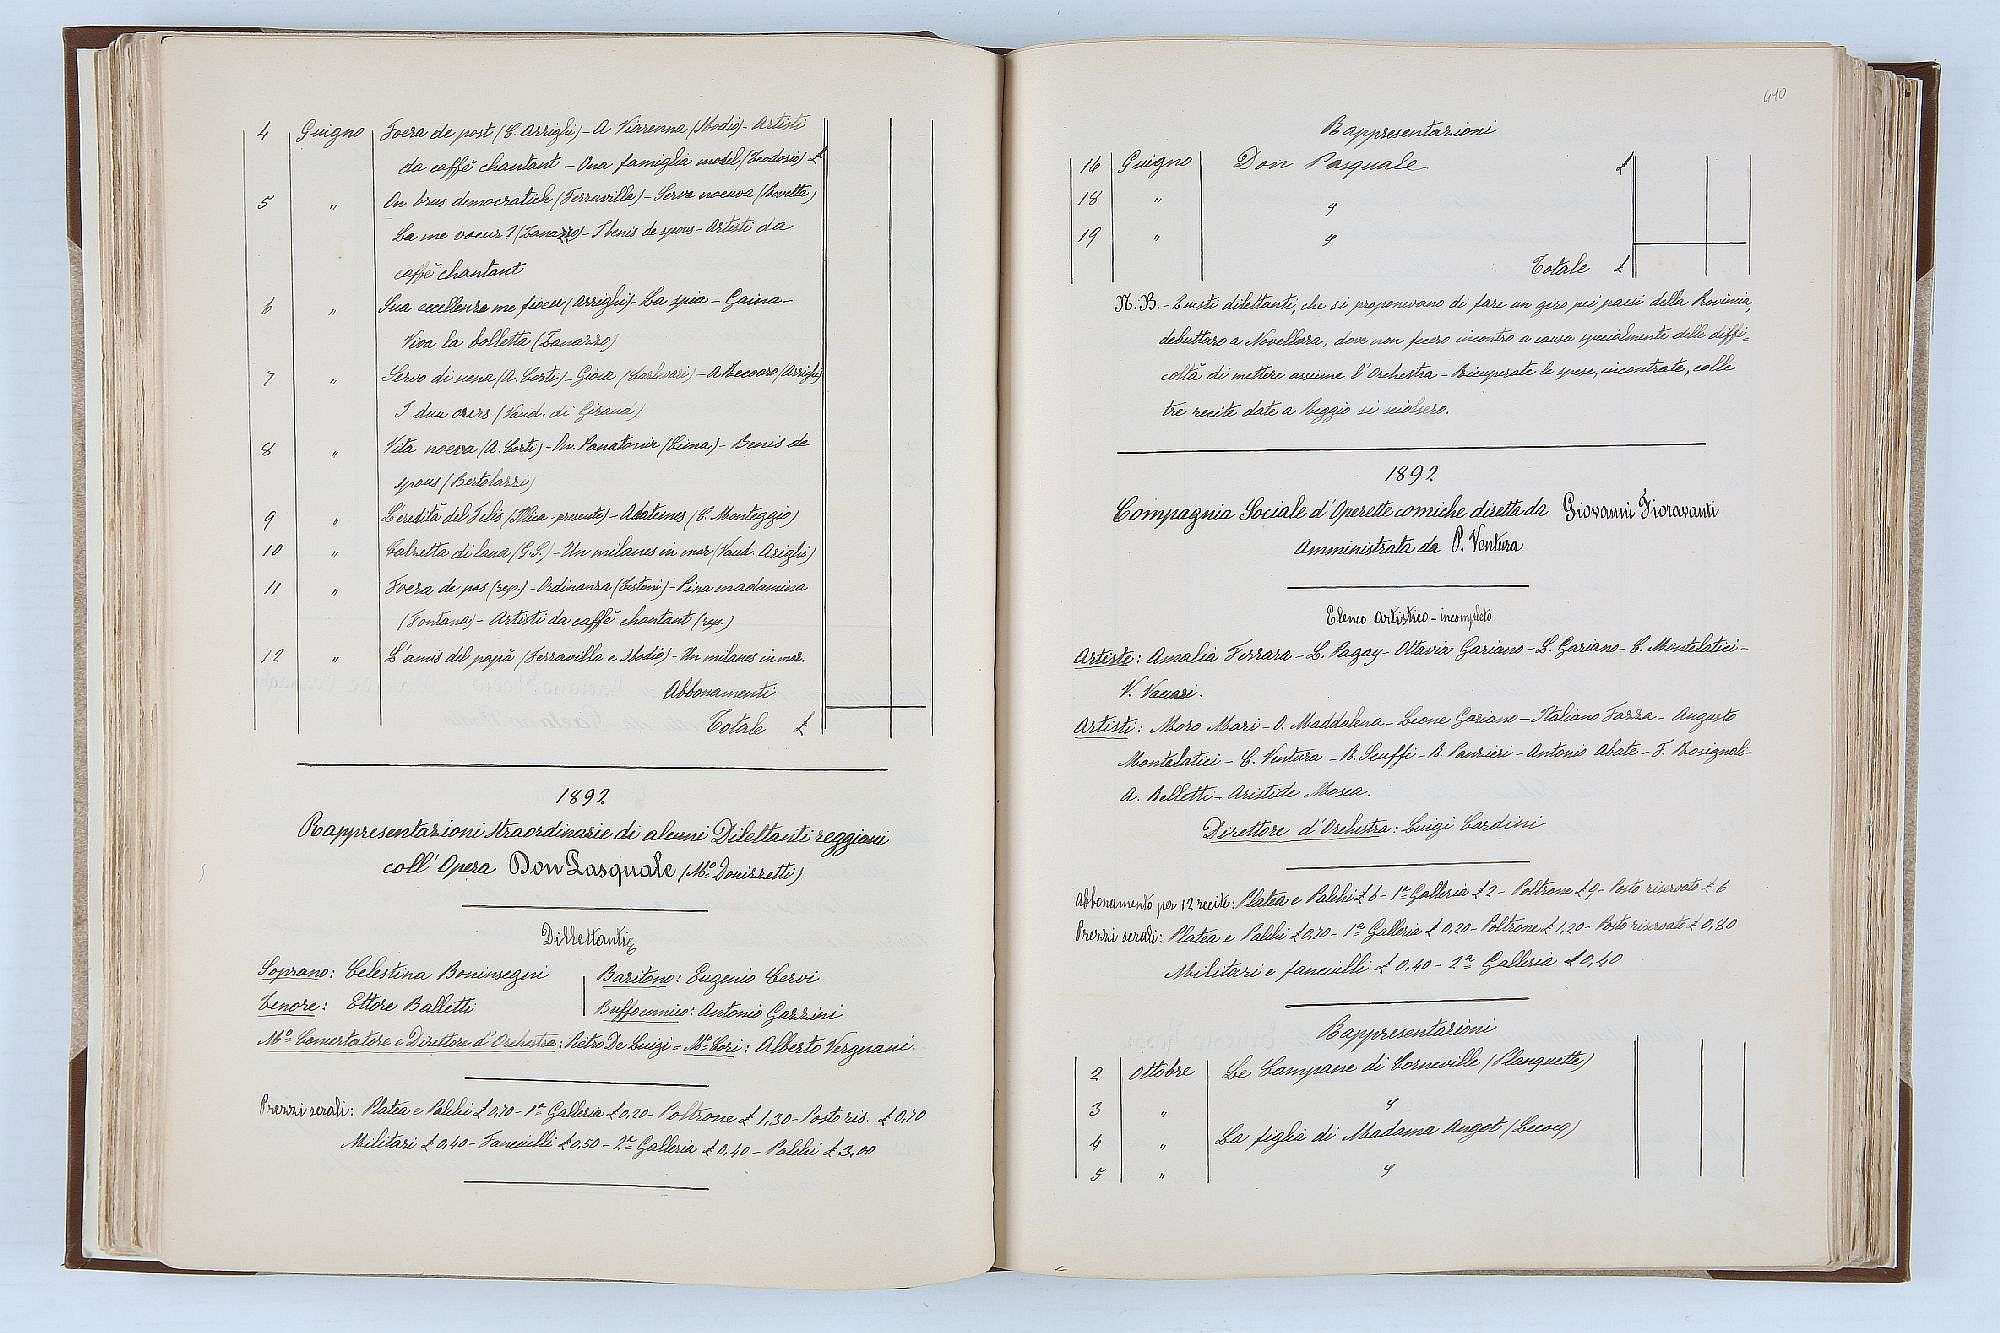 4 Giugno Foera de post (C. Arrighi) - A Viarenna (Stodio) - Artisti
da caffè chantant - Ona famiglia model (Teodosio) - £
5 " On brus democratich (Ferravilla) - Serva noeuva (Rovetta)
La me voeur? (Zanazzo) - I benis de spous - Artisti da
caffè chantant
6 " Sua eccellenza me (Arrighi) - La spia - Gaina -
Viva la bolletta (Zanazzo)
7 " Servo di scena (A. Corti) - Gioia - (Arrighi)
I duu orers (Vaud. di Giraud)
8 " Vita noeva (A. Corti) - (Cima) - Benis de
spous (Bertolazzi)
9 " L'eredità del Felis (Illica - ) - (C. Monteggio)
10 " Calzetta di lana (G.S.) - Un milanes in mar (Vaud. )
11 " Foera de pos (rep.) - Ordinanza (Testoni) - Pina madamina
(Fontana) - Artisti da caffè chantant (rep.)
12 " L'amis del papà (Ferravilla e Stodio) - Un milanes in mar.
Abbonamenti
Totale £
1892
Rappresentazioni straordinarie di alcuni Dilettanti reggiani
coll'Opera Don Pasquale (Mo. Donizzetti)
Dilettanti
Soprano: Celestina Boninsegni Baritono: Eugenio Cervi
Tenore: Ettore Balletti Buffo comico: Antonio Gazzini
Mo. Concertatore e Direttore d'Orchestra: Pietro De Luigi = Mo. Cori: Alberto Vergnani.
Prezzi serali: Platea e Palchi £ 0,70 - 1a Galleria £ 0,20 - Poltrone £ 1,30 - Posto ris. £ 0,70
Militari £ 0,40 - Fanciulli £ 0,50 - 2a Galleria £ 0,40 - Palchi £ 3,00
410
Rappresentazioni
16 Giugno Don Pasquale £
18 " "
19 " "
Totale £
N.B - Questi dilettanti, che si proponevano di fare un giro pei paesi della Provincia,
debuttaro a Novellara, dove non fecero incontro a causa specialmente delle diffi=
coltà di mettere assieme l'Orchestra - Ricuperate le spese, incontrate, colle
tre recite date a Reggio si sciolsero.
1892
Compagnia Sociale d'Operette comiche diretta da Giovanni Fioravanti
Amministrata da P. Ventura
Elenco artistico - incompleto
Artiste: Amalia Ferrara - L. Pagay - Ottavia Gariano - L. Gariano - C. Montelatici -
V. Vaccari.
Artisti: Moro Mari - O. Maddalena - Leone Gariano - Italiano Fazza - Augusto
Montelatici - C. Ventura - R. Scuffi - R. Panzieri - Antonio Abate - F. Rosignoli
A. Belletti - Aristide Mosca.
Direttore d'Orchestra: Luigi Cardini
Abbonamento per 12 recite: Platea e Palchi £ 6 - 1a Galleria £ 2 - Poltrone £ 9 - Posto riservato £ 6
Prezzi serali: Platea e Palchi £ 0,70 - 1a Galleria £ 0,20 - Poltrone £ 1,20 - Posto riservato £ 0,80
Militari e fanciulli £ 0,40 - 2a Galleria £ 0,40
Rappresentazioni
2 Ottobre Le Campane di Corneville (Planquette)
3 " "
4 " La figlia di Madama Angot (Lecocq)
5 " "